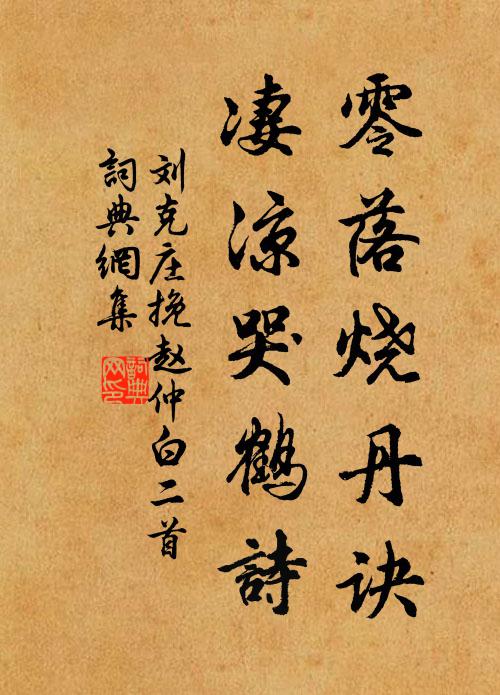 零落烧丹诀
凄凉哭鹤詩
刘克庄挽赵仲白二首
詞典網集
詞典网印